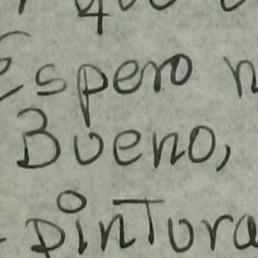 Espero n
Bueno,
pintura